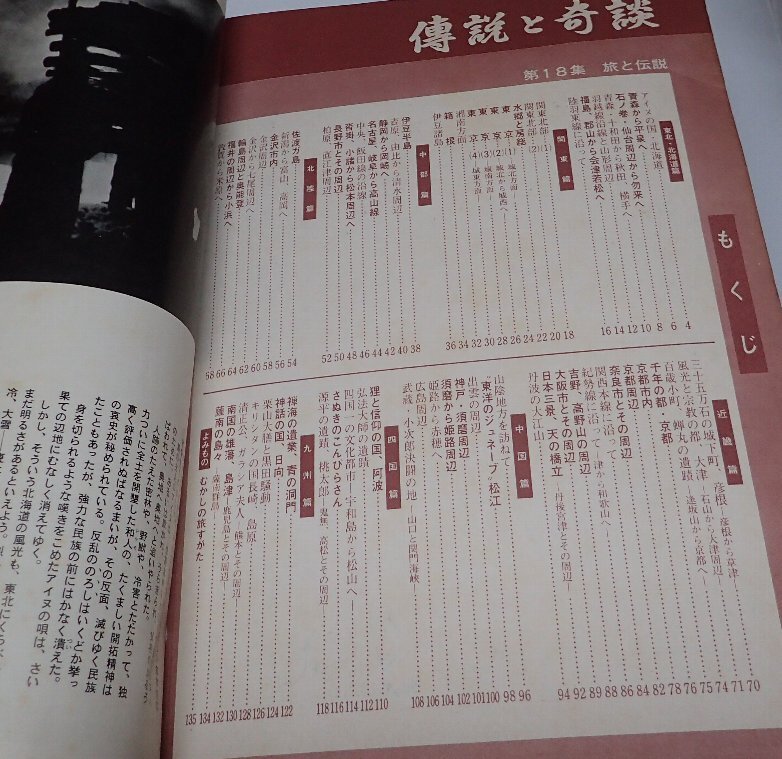 傳説と奇談
第18集 旅と伝説
もくじ
東北・北海道篇
アイヌの国・北海道 4
青森から平泉へ 6
石ノ巻・仙台周辺から勿来へ 8
青森・十和田から秋田 横手へ 10
羽越線沿線と山形周辺 12
福島、郡山から会津若松へ 14
陸羽東線に沿って 16
関東篇
関東北部(1) 18
関東北部(2) 20
水郷と房総 22
東京(1)
東京(2)
東京(3)
東京(4)
湘南方面
箱根
伊豆諸島
中部篇
伊豆半島 38
吉原、由比から清水周辺 40
静岡から岡崎へ 42
名古屋、岐阜から高山線 44
中央、飯田線の沿線 46
沓掛・小諸から松本周辺へ 48
長野市とその周辺 50
柏原、直江津周辺 52
北陸篇
佐渡ガ島 54
新潟から富山、高岡へ 56
金沢市内 58
金沢周辺 60
金沢から七尾周辺へ 62
輪島周辺・奥能登 64
福井の周辺から小浜へ 66
敦賀から米原へ 68
近畿篇
三十五万石の城下町、彦根―彦根から草津― 70
風光と宗教の都 大津―石山から大津周辺― 71
百歳小町、蝉丸の遺蹟―逢坂山から京都へ― 74
千年の都 京都 75
京都市内 76
京都周辺 78
奈良市とその周辺
関西本線に沿って
紀勢線に沿って―津から和歌山へ―
吉野・高野山の周辺
大阪市とその周辺
日本三景、天の橋立―丹後宮津とその周辺―
丹波の大江山 94
中国篇
山陰地方を訪ねて 96
“東洋のジュネーブ”松江 98
出雲の周辺 100
神戸・須磨周辺 101
須磨から姫路周辺 102
姫路から赤穂へ 104
広島周辺 106
武蔵、小次郎決闘の地―山口と関門海峡 108
四国篇
狸と信仰の国、阿波 110
弘法大師の遺蹟 112
四国一の文化都市―宇和島から松山へ― 114
さぬきのこんぴらさん 116
源平の遺蹟、桃太郎―鬼無、高松とその周辺― 118
九州篇
禅海の遺業、青の洞門 122
神話の国、日向 124
栗山大膳と黒田騒動 126
キリシタンの長崎、島原 128
清正公、ガランド夫人―熊本とその周辺― 130
南国の雄藩、島津―鹿児島とその周辺― 132
薩南の島々―薩南群島― 134
よみもの むかしの旅すがた 135
九ついに全土を制覇した和人の、たくましい開拓精神は
高く評価さればなるまいが、その反面、滅びゆく民族
の哀史が秘められている。反乱ののろしはいくどか挙っ
たこともあったが、強力な民族の前にはかなく潰えた。
身を切られるような嘆きをこめたアイヌの唄は、さい
果ての辺地にむなしく消えてゆく。
しかし、そういう北海道の風光も、東北にくら
まだ明るさがあるといえよう。
冷、大雪